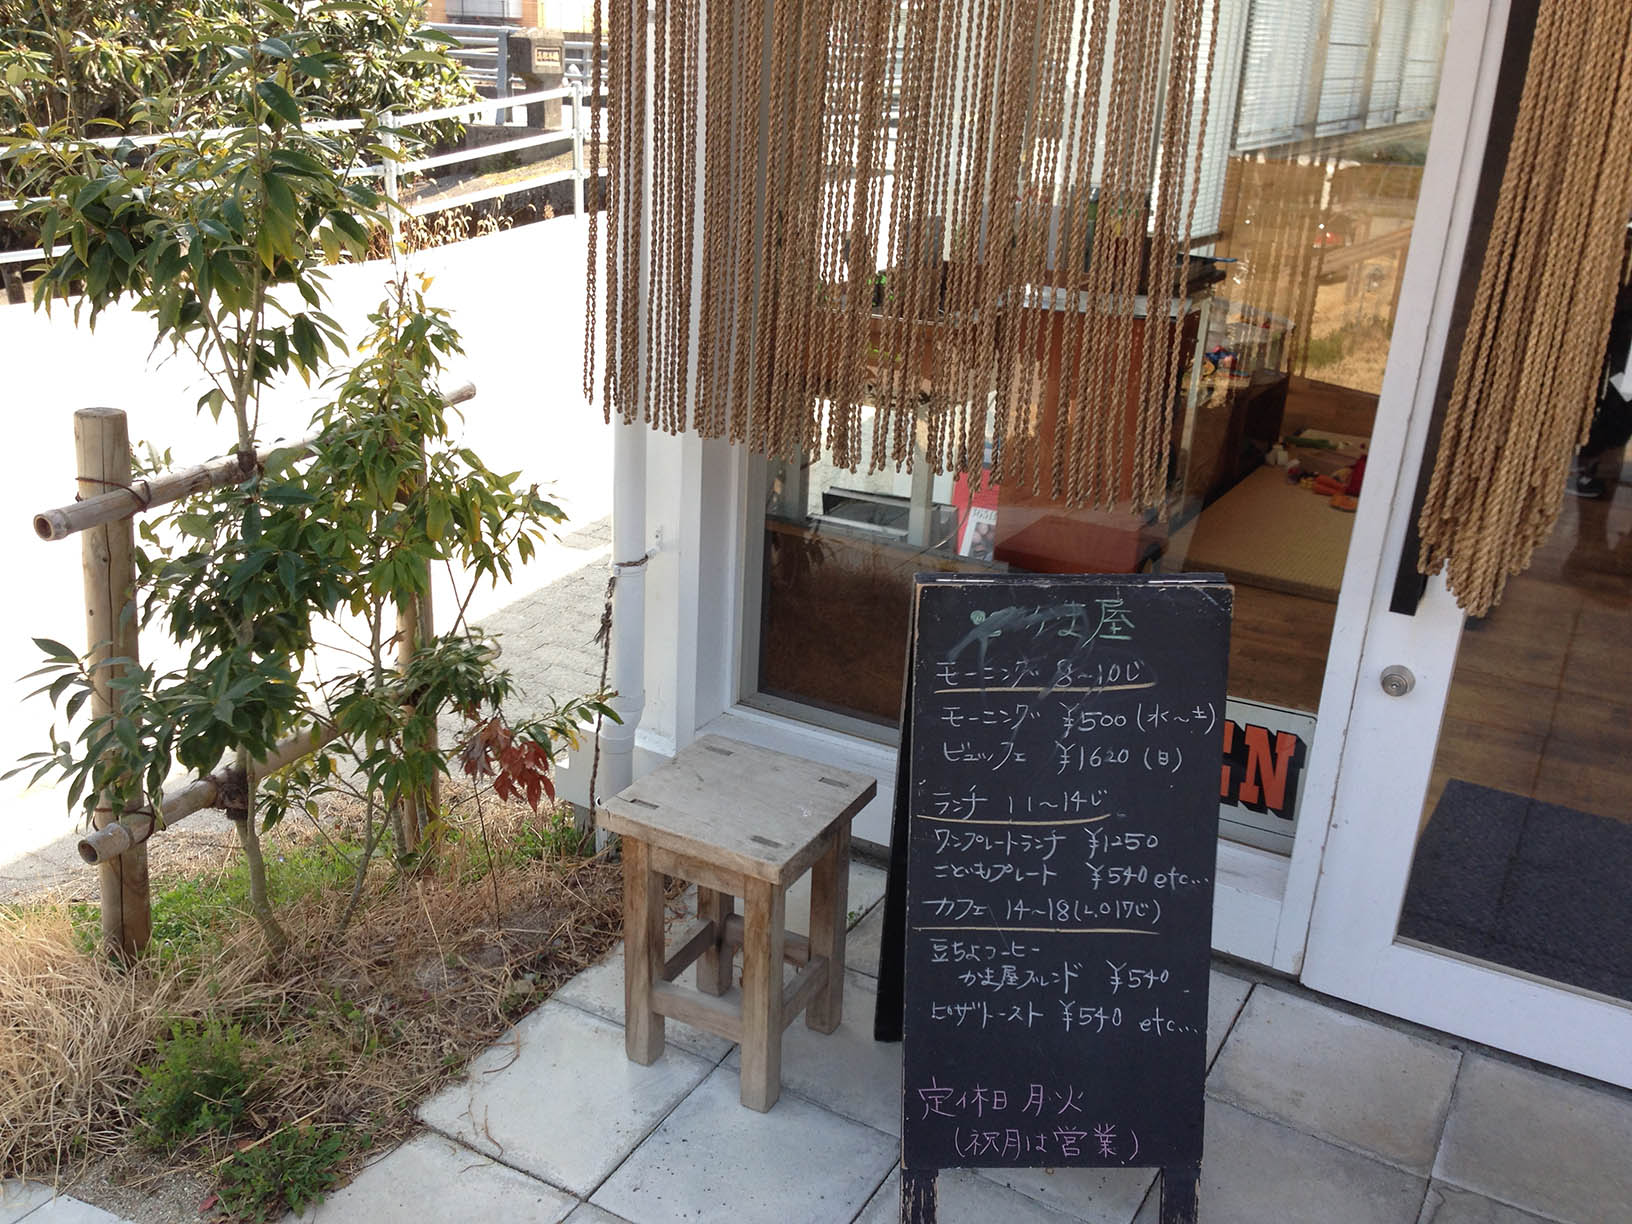 かま屋
モーニング 8〜10じ
モーニング ¥500(水〜土)
ビュッフェ ¥1620(日)
ランチ 11〜14じ
ワンプレートランチ ¥1250
こどもプレート ¥540 etc...
カフェ 14〜18(L.O17じ)
豆ちよコーヒー
かま屋ブレンド ¥540
ピザトースト ¥540 etc...
定休日 月・火
(祝月は営業)
EN